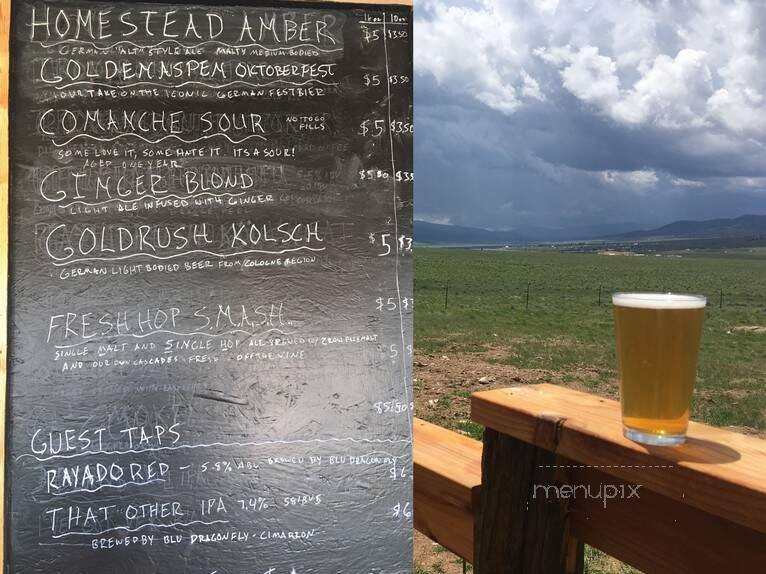 16oz 10oz
HOMESTEAD AMBER $5 $3.50
GERMAN "ALT" STYLE ALE MALTY MEDIUM BODIED
GOLDEN ASPEN OKTOBERFEST $5 $3.50
OUR TAKE ON THE ICONIC GERMAN FESTBIER
COMANCHE SOUR NO TO GO FILLS $5 $3.50
SOME LOVE IT, SOME HATE IT. ITS A SOUR!
AGED ONE YEAR
GINGER BLOND $5.50
LIGHT ALE INFUSED WITH GINGER
GOLDRUSH KOLSCH $5 $3
GERMAN LIGHT BODIED BEER FROM COLOGNE REGION
$5
FRESH HOP S.M.A.S.H.
SINGLE MALT AND SINGLE HOP ALE BREWED W/ 2ROW
AND OUR OWN CASCADES FRESH OFF THE VINE
GUEST TAPS
RAYADO RED - 5.8% ABV BREWED BY BLU DRAGONFLY $6
THAT OTHER IPA 7.4% 58 IBUS $6
BREWED BY BLU DRAGONFLY - CIMARRON
menupix